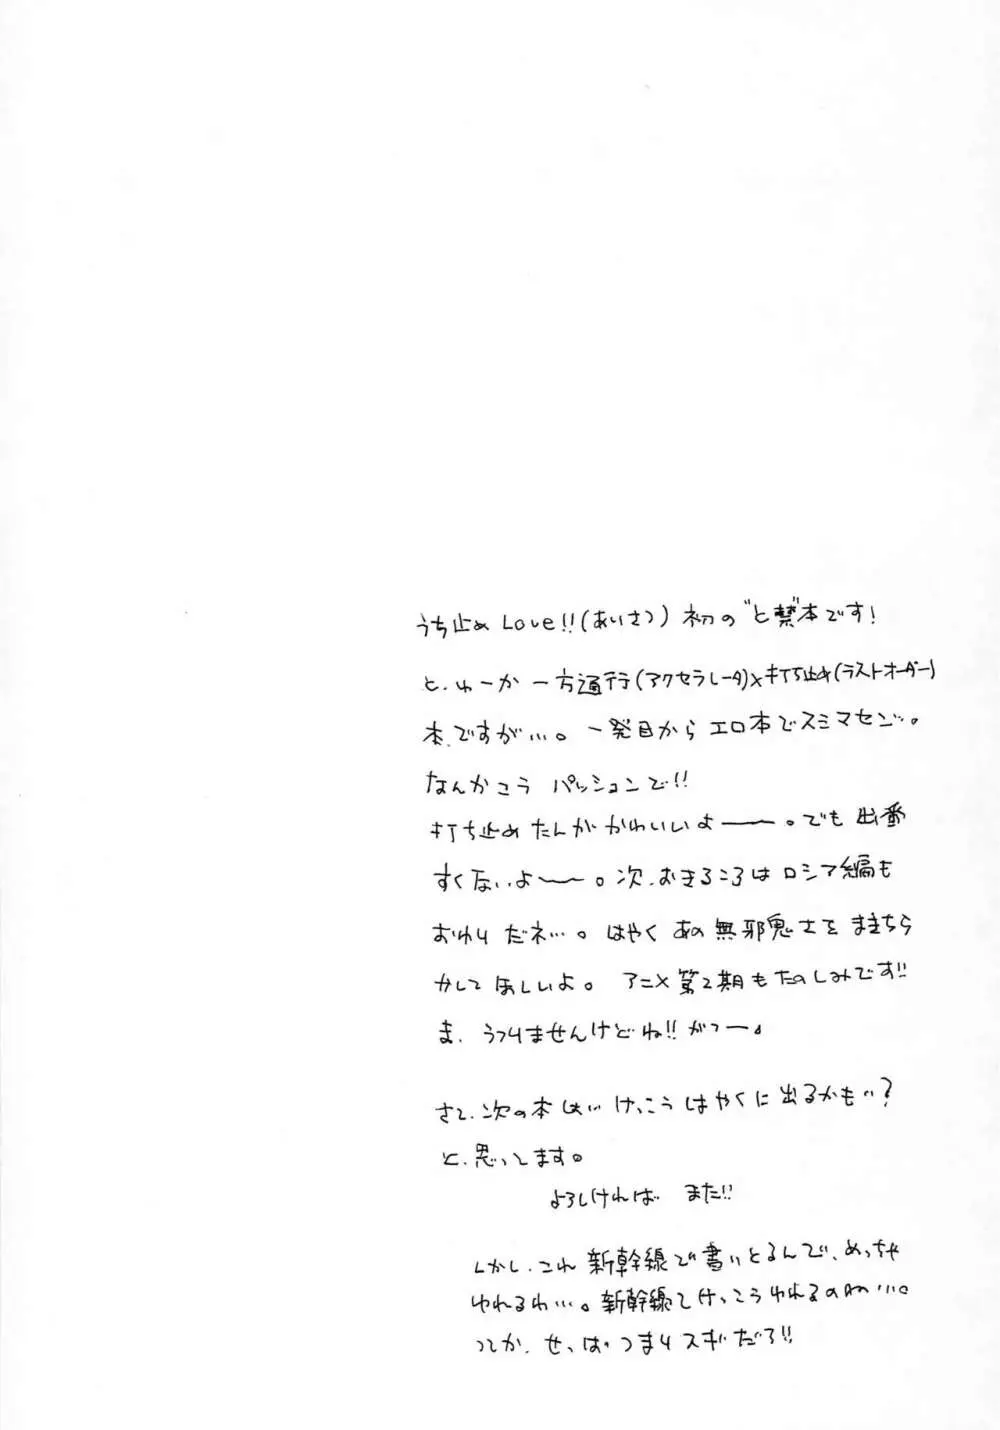 うち止め Love!!(あいさつ) 初の"と禁"本です!
と、ゆーか 一方通行(アクセラレータ)×打ち止め(ラストオーダー)
本、ですが…。一発目から エロ本でスミマセン…。
なんかこう パッションで!!
打ち止めたんが かわいいよーー。でも 出番
すくないよーー。次、おきるころは ロシア編も
おわり だネ…。はやく あの 無邪鬼さを まきちら
かして ほしいよ。 アニメ 第2期も たのしみです!!
ま、うつりませんけどね!! がつー。
さて、次の本 は、けっこう はやくに 出るかも…?
と、思ってます。
よろしければ また!!
しかし、これ 新幹線で 書いとるんで、めっちゃ
ゆれるわ…。新幹線て けっこう ゆれるのね…。
ってか、せっぱ、つまり スギだろ!!